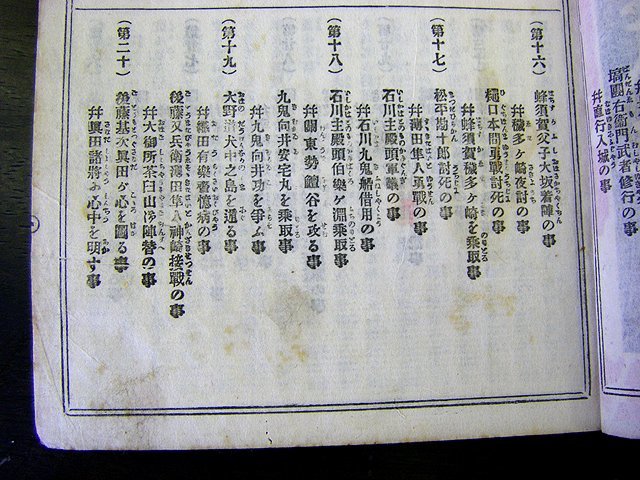 塙團右衞門武者修行の事
幷直行入城の事
(第十六)
蜂須賀父子大坂着陣の事
幷穢多ヶ崎夜討の事
樋口本間勇戰討死の事
幷蜂須賀穢多ヶ崎を乘取事
(第十七)
松平勘十郎討死の事
幷薄田隼人勇戰の事
石川主殿頭軍議の事
幷石川九鬼船借用の事
(第十八)
石川主殿頭伯樂ヶ淵乘取事
幷關東勢鱣谷を攻る事
九鬼向井安宅丸を乘取事
幷九鬼向井功を爭ふ事
(第十九)
大野治犬中之島を遁る事
幷織田有樂齋憶病の事
後藤又兵衞薄田隼人神崎接戰の事
幷大御所茶臼山御陣替の事
(第二十)
後藤基次眞田が心を圖る事
幷眞田諸將お心中を明す事